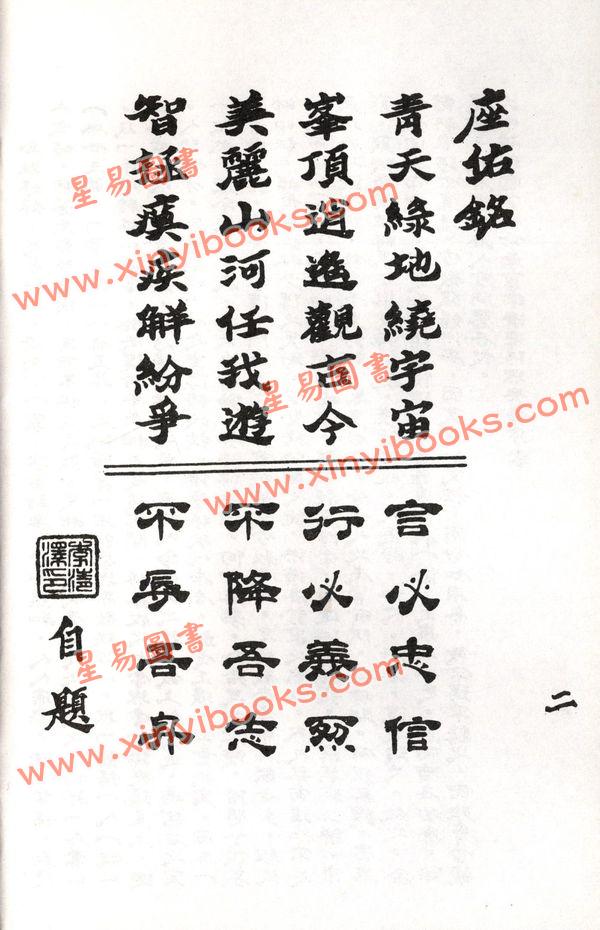 座佑銘
青天綠地繞宇宙
峯頂逍遙觀古今
美麗山河任我遊
智拯瘼疾解紛爭
言必忠信
行必義烈
不降吾志
不辱吾身
自題
二
星易圖書
www.xinyibooks.com
星易圖書
www.xinyibooks.com
星易圖書
www.xinyibooks.com